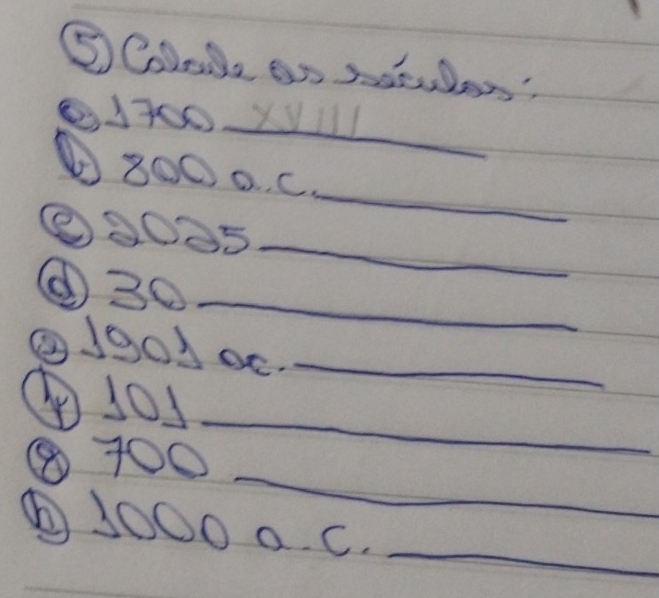 ⑤ Calcule os séculos:
ⓐ 1700 XVIII
ⓑ 800 a.C.
ⓒ 2025
ⓓ 30
ⓔ 1901 ac.
ⓕ 101
ⓖ 700
ⓗ 1000 a.C.